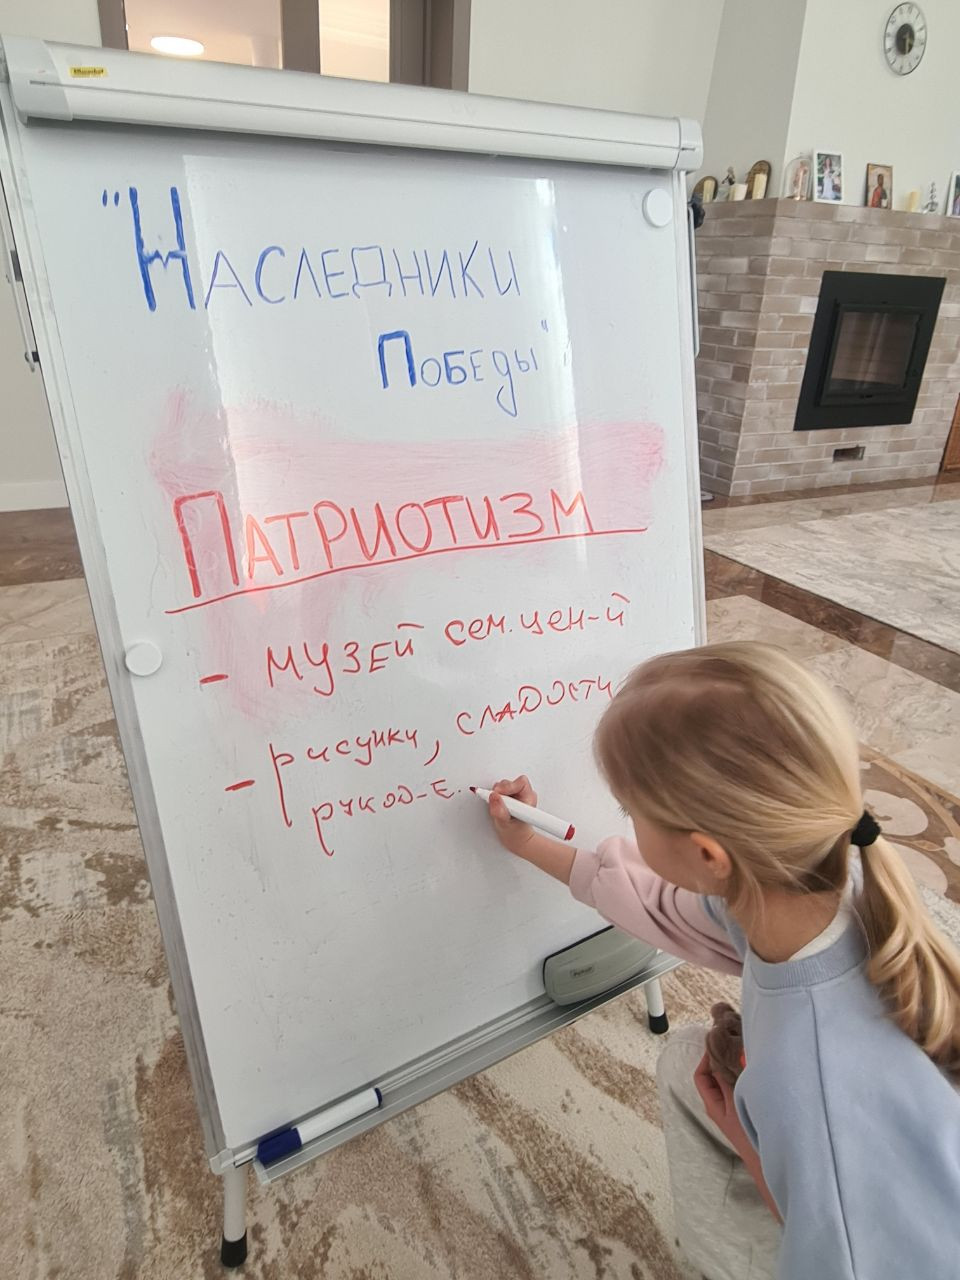 "НАСЛЕДНИКИ
ПОБЕДЫ"
ПАТРИОТИЗМ
- МУЗЕЙ сем.цен-й
- рисунки, сладости
рукод-е.